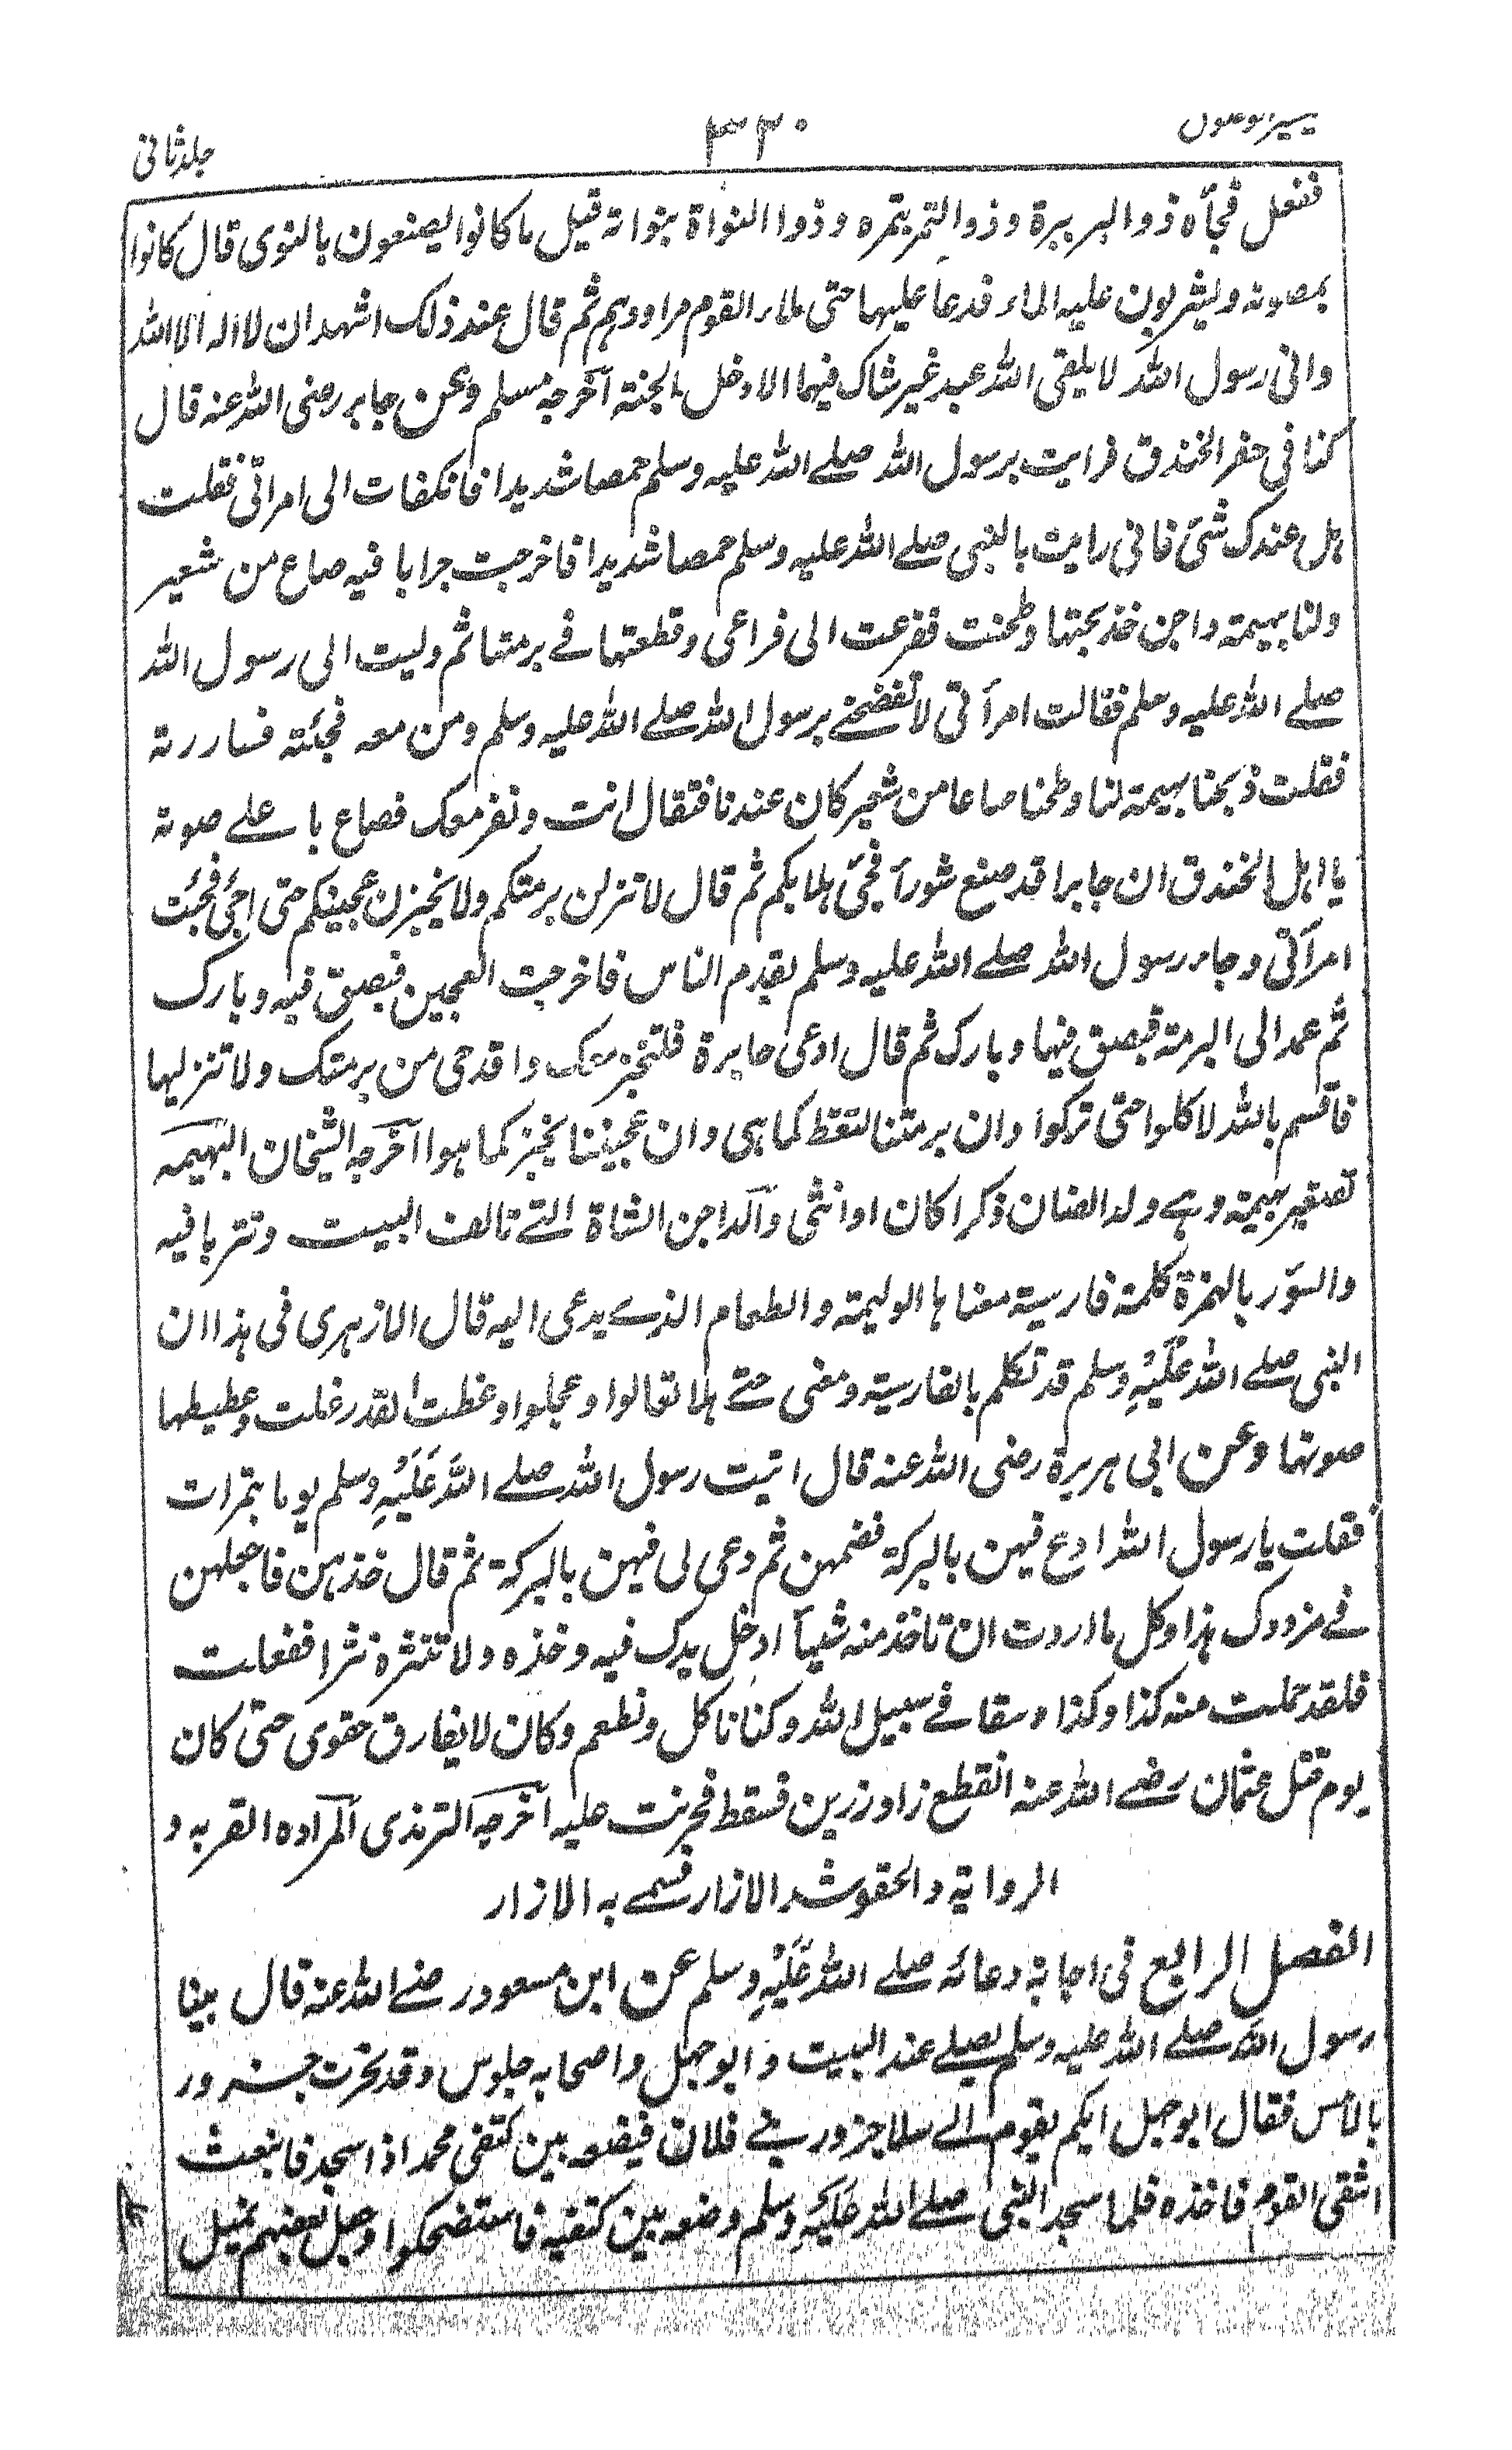 جلد ثانی
۳۳۰
ففعل فجآه ذو البر ببرة و ذو التمر بتمره و ذوا النواة بنواته قیل ما کانوا یصنعون بالنوی قال کانوا
یمصونه و یشربون علیه الماء فدعا علیها حتی ملاء القوم مزاودہم ثم قال عند ذلک اشهد ان لا اله الا الله
و انی رسول الله لا یلقی الله عبد غیر شاک فیهما الا دخل الجنة آخرجه مسلم وعن جابر رضی الله عنه قال
کنا فی حفر الخندق فرایت برسول الله صلے الله علیه وسلم خمصا شدیدا فانکفات الی امراتی فقلت
ہل عندک شئ فانی رایت بالنبی صلے الله علیه وسلم خمصا شدیدا فاخرجت جرابا فیه صاع من شعیر
ولنا بہیمة داجن فذبحتها و طحنت ففرغت الی فراغی و قطعتها فے برمتها ثم ولیت الی رسول الله
صلے الله علیه وسلم فقالت امرأتی لا تفضحنے برسول الله صلے الله علیه وسلم ومن معه فجئته فساررته
فقلت ذبحنا بہیمة لنا و طحنا صاعا من شعیر کان عندنا فتقال انت و نفر معک فصاع با علے صوته
یا اہل الخندق ان جابرا قد صنع شورآ فحیَ ہلا بکم ثم قال لا تنزلن برمتکم ولا یخبزن عجینکم حتی اجئ فجئت
امرأتی و جاء رسول الله صلے الله علیه وسلم یقدم الناس فاخرجت العجین فبصق فیه و بارک
ثم عمد الی البرمة فبصق فیها و بارک ثم قال ادعی خابرة فلتخبز معک واقدحی من برمتک ولا تنزلیها
فاقسم بالله لا کلوا حتی ترکوا وان برمتنا لتغط کما ہی وان عجیننا یخبز کما هوا آخرجه الشیخان البہیمه
تصغیر بہیمة وہے ولد الضان ذکرا کان او انثی وآلداجن الشاة التے تالف البیت و تتربا فیه
والسوٓر بالہمزة کلمة فارسیة معناہا الولیمة والطعام الذے یدعی الیه قال الازہری فی ہذا ان
النبی صلے الله عَلَیْهِ وسلم قد تکلم بالفارسیة و معنی حتے ہلا تعالوا و عجلوا و غطت القدر غلت وغطیطها
صوتها وعن ابی هریرة رضی الله عنه قال اتیت رسول الله صلے الله عَلَیْهِ وسلم یوما بتمرات
فقلت یا رسول الله ادع فیهن بالبرکة فضمهن ثم دعی لی فیهن بالبرکة ثم قال خذہن فاجعلهن
فے مزودک ہذا وکل ما اردت ان تاخذ منه شیآ ادخل یدک فیه و خذه ولا تنثره نثرا ففعلت
فلقد حملت منه کذا و کذا وسقا فے سبیل الله وکنا ناکل و نطعم وکان لا یفارق حقوی حتی کان
یوم قتل عثمان رضے الله عنه انقطع زاد رزین فسقط فحزنت علیه آخرجه الترمذی المزاده القربه و
الروایة والحقو شد الازار فسمے به الازار
الفصل الرابع فی اجابة دعائه صلے الله عَلَیْهِ وسلم عن ابن مسعود رضے الله عنه قال بینا
رسول الله صلے الله علیه وسلم یصلے عند البیت و ابو جهل و اصحابه جلوس وقد نحرت جزور
بالامس فقال ابو جهل ایکم یقوم الے سلا جزور بنے فلان فیضعه بین کتفی محمد اذا سجد فانبعث
اشقی القوم فاخذه فلما سجد النبی صلے الله عَلَیْهِ وسلم وضعه بین کتفیه فاستضحکوا وجعل بعضهم یمیل